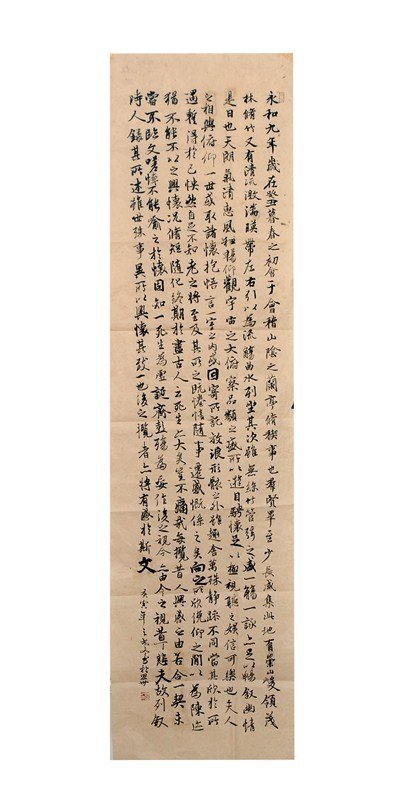 永和九年歲在癸丑暮春之初會于會稽山陰之蘭亭脩稧事也羣賢畢至少長咸集此地有崇山峻領茂
林脩竹又有清流激湍暎帶左右引以為流觴曲水列坐其次雖無絲竹管弦之盛一觴一詠亦足以暢叙幽情
是日也天朗氣清惠風和暢仰觀宇宙之大俯察品類之盛所以遊目騁懷足以極視聽之娛信可樂也夫人
之相與俯仰一世或取諸懷抱悟言一室之内或因寄所託放浪形骸之外雖趣舍萬殊靜躁不同當其欣於所
遇暫得於己怏然自足不知老之將至及其所之既惓情隨事遷感慨係之矣向之所欣俛仰之間以為陳迹
猶不能不以之興懷況脩短隨化終期於盡古人云死生亦大矣豈不痛哉每攬昔人興感之由若合一契未
嘗不臨文嗟悼不能喻之於懷固知一死生為虛誕齊彭殤為妄作後之視今亦由今之視昔悲夫故列叙
時人錄其所述雖世殊事異所以興懷其致一也後之攬者亦將有感於斯文
寅年之